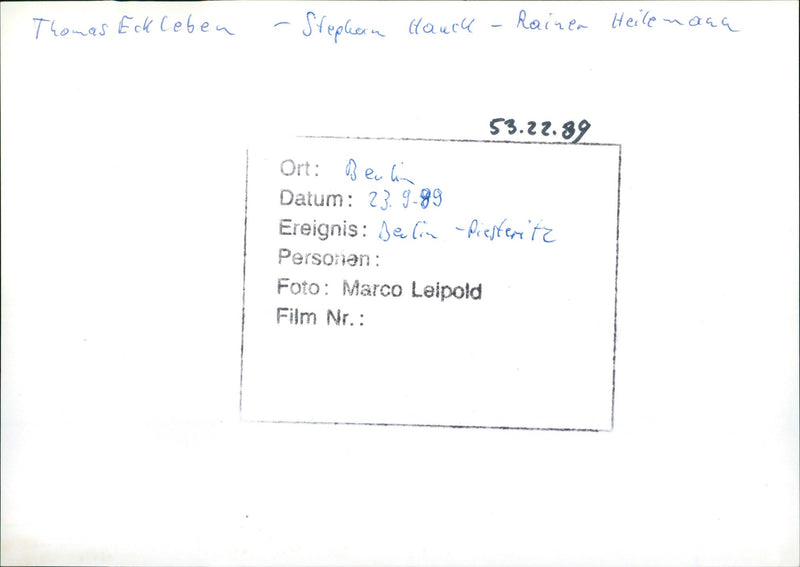 Thomas Eckleben - Stephan Hauck - Rainer Heilemann
53.22.89
Ort: Berlin
Datum: 23.9.89
Ereignis: Berlin - Piesteritz
Personen:
Foto: Marco Leipold
Film Nr.: